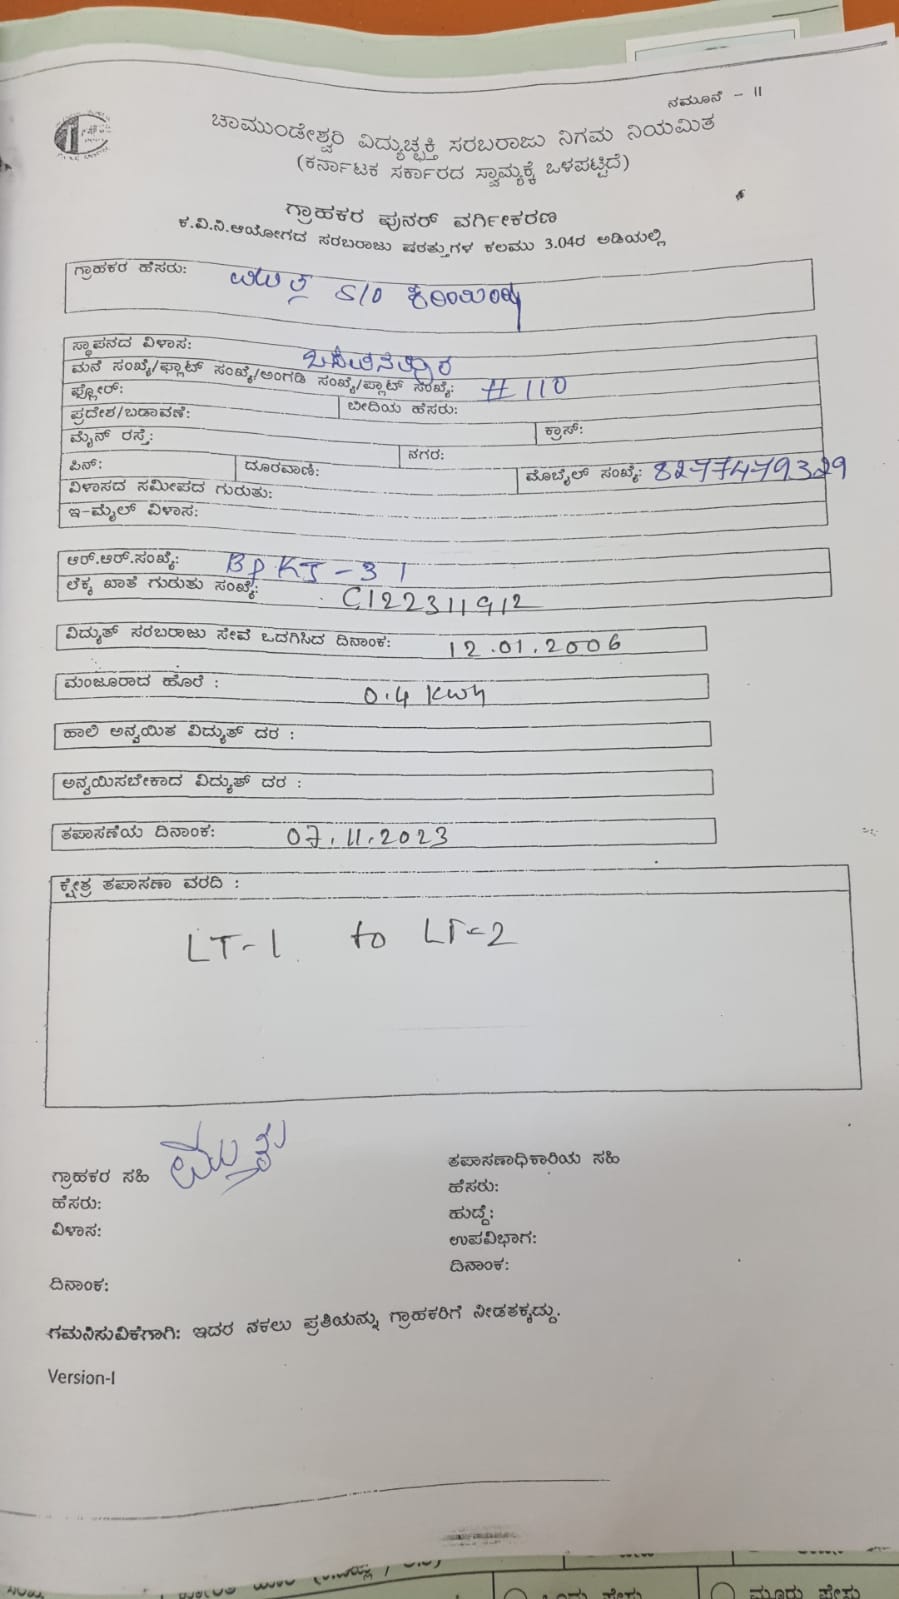 ನಮೂನೆ - II
ಚಾಮುಂಡೇಶ್ವರಿ ವಿದ್ಯುಚ್ಛಕ್ತಿ ಸರಬರಾಜು ನಿಗಮ ನಿಯಮಿತ
(ಕರ್ನಾಟಕ ಸರ್ಕಾರದ ಸ್ವಾಮ್ಯಕ್ಕೆ ಒಳಪಟ್ಟಿದೆ)
ಗ್ರಾಹಕರ ಪುನರ್ ವರ್ಗೀಕರಣ
ಕ.ವಿ.ನಿ.ಆಯೋಗದ ಸರಬರಾಜು ಷರತ್ತುಗಳ ಕಲಮು 3.04ರ ಅಡಿಯಲ್ಲಿ
ಗ್ರಾಹಕರ ಹೆಸರು: S/O
ಸ್ಥಾಪನದ ವಿಳಾಸ:
ಮನೆ ಸಂಖ್ಯೆ/ಫ್ಲಾಟ್ ಸಂಖ್ಯೆ/ಅಂಗಡಿ ಸಂಖ್ಯೆ/ಪ್ಲಾಟ್ ಸಂಖ್ಯೆ: #110
ಫ್ಲೋರ್: ಬೀದಿಯ ಹೆಸರು:
ಪ್ರದೇಶ/ಬಡಾವಣೆ: ಕ್ರಾಸ್:
ಮೈನ್ ರಸ್ತೆ: ನಗರ:
ಪಿನ್: ದೂರವಾಣಿ: ಮೊಬೈಲ್ ಸಂಖ್ಯೆ: 8277479329
ವಿಳಾಸದ ಸಮೀಪದ ಗುರುತು:
ಇ-ಮೈಲ್ ವಿಳಾಸ:
ಆರ್.ಆರ್.ಸಂಖ್ಯೆ: BPKJ-31
ಲೆಕ್ಕ ಖಾತೆ ಗುರುತು ಸಂಖ್ಯೆ: C122311912
ವಿದ್ಯುತ್ ಸರಬರಾಜು ಸೇವೆ ಒದಗಿಸಿದ ದಿನಾಂಕ: 12.01.2006
ಮಂಜೂರಾದ ಹೊರೆ : 0.4 KWh
ಹಾಲಿ ಅನ್ವಯಿತ ವಿದ್ಯುತ್ ದರ :
ಅನ್ವಯಿಸಬೇಕಾದ ವಿದ್ಯುತ್ ದರ :
ತಪಾಸಣೆಯ ದಿನಾಂಕ: 07.11.2023
ಕ್ಷೇತ್ರ ತಪಾಸಣಾ ವರದಿ :
LT-1 to LT-2
ಗ್ರಾಹಕರ ಸಹಿ
ಹೆಸರು:
ವಿಳಾಸ:
ದಿನಾಂಕ:
ತಪಾಸಣಾಧಿಕಾರಿಯ ಸಹಿ
ಹೆಸರು:
ಹುದ್ದೆ:
ಉಪವಿಭಾಗ:
ದಿನಾಂಕ:
ಗಮನಿಸುವಿಕೆಗಾಗಿ: ಇದರ ನಕಲು ಪ್ರತಿಯನ್ನು ಗ್ರಾಹಕರಿಗೆ ನೀಡತಕ್ಕದ್ದು.
Version-I